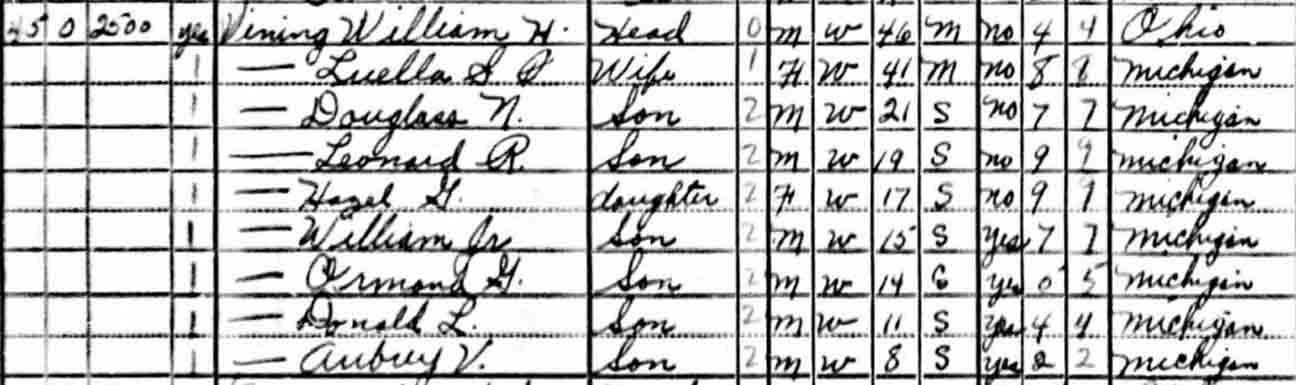 45 0 2500 yes Vining William H. Head 0 m w 46 m no 4 4 Ohio
1 — Luella S Wife 1 F W 41 m no 8 8 michigan
1 — Douglass N. Son 2 m W 21 S no 7 7 Michigan
1 — Leonard R. Son 2 m w 19 S no 9 9 michigan
1 — Hazel G. daughter 2 F w 17 S no 9 9 michigan
1 — William Jr Son 2 m w 15 S yes 7 7 michigan
1 — Ormond G. Son 2 m w 14 yes 5 michigan
1 — Donald L. Son 2 m w 11 S yes 4 4 michigan
1 — Aubrey V. Son 2 m w 8 S yes 2 2 michigan